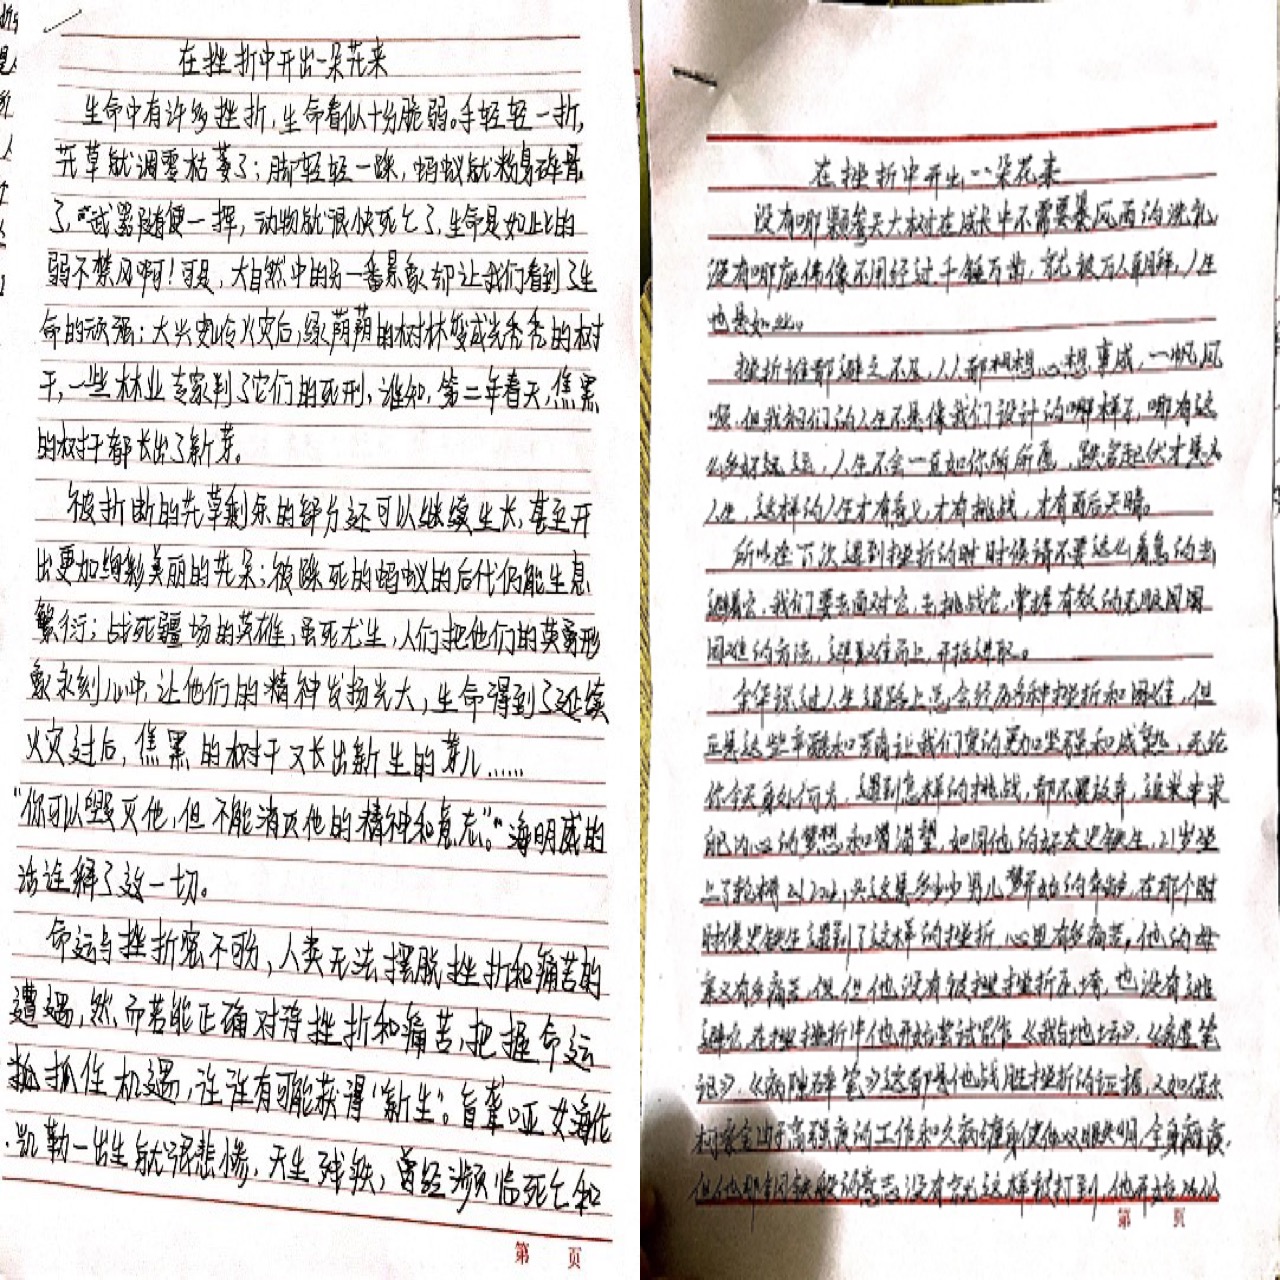 在挫折中开出一朵花来
生命中有许多挫折,生命看似十分脆弱。手轻轻一折,
花草就凋零枯萎了;脚轻轻一踩,蚂蚁就粉身碎骨
了,武器随便一挥,动物就很快死亡了,生命是如此的
弱不禁风啊!可是,大自然中的另一番景象却让我们看到了生
命的顽强:大兴安岭火灾后,绿荫荫的树林变成光秃秃的树
干,一些林业专家判了它们的死刑,谁知,第二年春天,焦黑
的树干都长出了新芽。
被折断的花草剩余的部分还可以继续生长,甚至开
出更加绚彩美丽的花朵;被踩死的蚂蚁的后代仍能生息
繁衍;战死疆场的英雄,虽死尤生,人们把他们的英勇形
象永刻心中,让他们的精神发扬光大,生命得到了延续
火灾过后,焦黑的树干又长出新生的芽儿……
“你可以毁灭他,但不能消灭他的精神和意志。”海明威的
话诠释了这一切。
命运与挫折密不可分,人类无法摆脱挫折和痛苦的
遭遇,然而若能正确对待挫折和痛苦,把握命运
抓住机遇,往往有可能获得“新生”。盲聋哑女海伦
·凯勒一出生就很悲惨,天生残缺,曾经濒临死亡和
第 页
在挫折中开出一朵花来
没有哪颗参天大树在成长中不需要暴风雨的洗礼
没有哪座佛像不用经过千锤万凿,就被万人朝拜,人生
也是如此。
挫折谁都避之不及,人人都想心想事成,一帆风
顺,但我们的人生不是像我们设计的哪样子,哪有这
么多好运,人生不会一直如你所愿,跌宕起伏才是人
人生,这样的人生才有意义,才有挑战,才有雨后天晴。
所以在下次遇到挫折的时候请不要这么着急的去
避开它,我们要去面对它,去挑战它,掌握有效的克服困
困难的方法,迎难而上,开拓进取。
余华说过人生道路上总会经历各种挫折和困难,但
正是这些辛酸和苦痛让我们变的更加坚强和成熟,无论
你今天身处何方,遇到怎样的挑战,都不要放弃,追求
内心的梦想和渴望,如同他的好友史铁生,21岁坐
上了轮椅,21岁,这是多少少男儿梦开始的年龄,在那个时
时候史铁生遇到了这样的挫折,心里有多痛苦,他的母
亲又有多痛苦,但他没有被挫折压垮,也没有逃
避它,在挫折中他开始尝试写作《我与地坛》,《病隙笔
记》,《病隙碎笔》这都是他战胜挫折的证据,又如保尔
柯察金由于高强度的工作和久病缠身使他双眼失明,全身瘫痪,
但他那钢铁般的意志没有就这样被打到,他开始
第 页